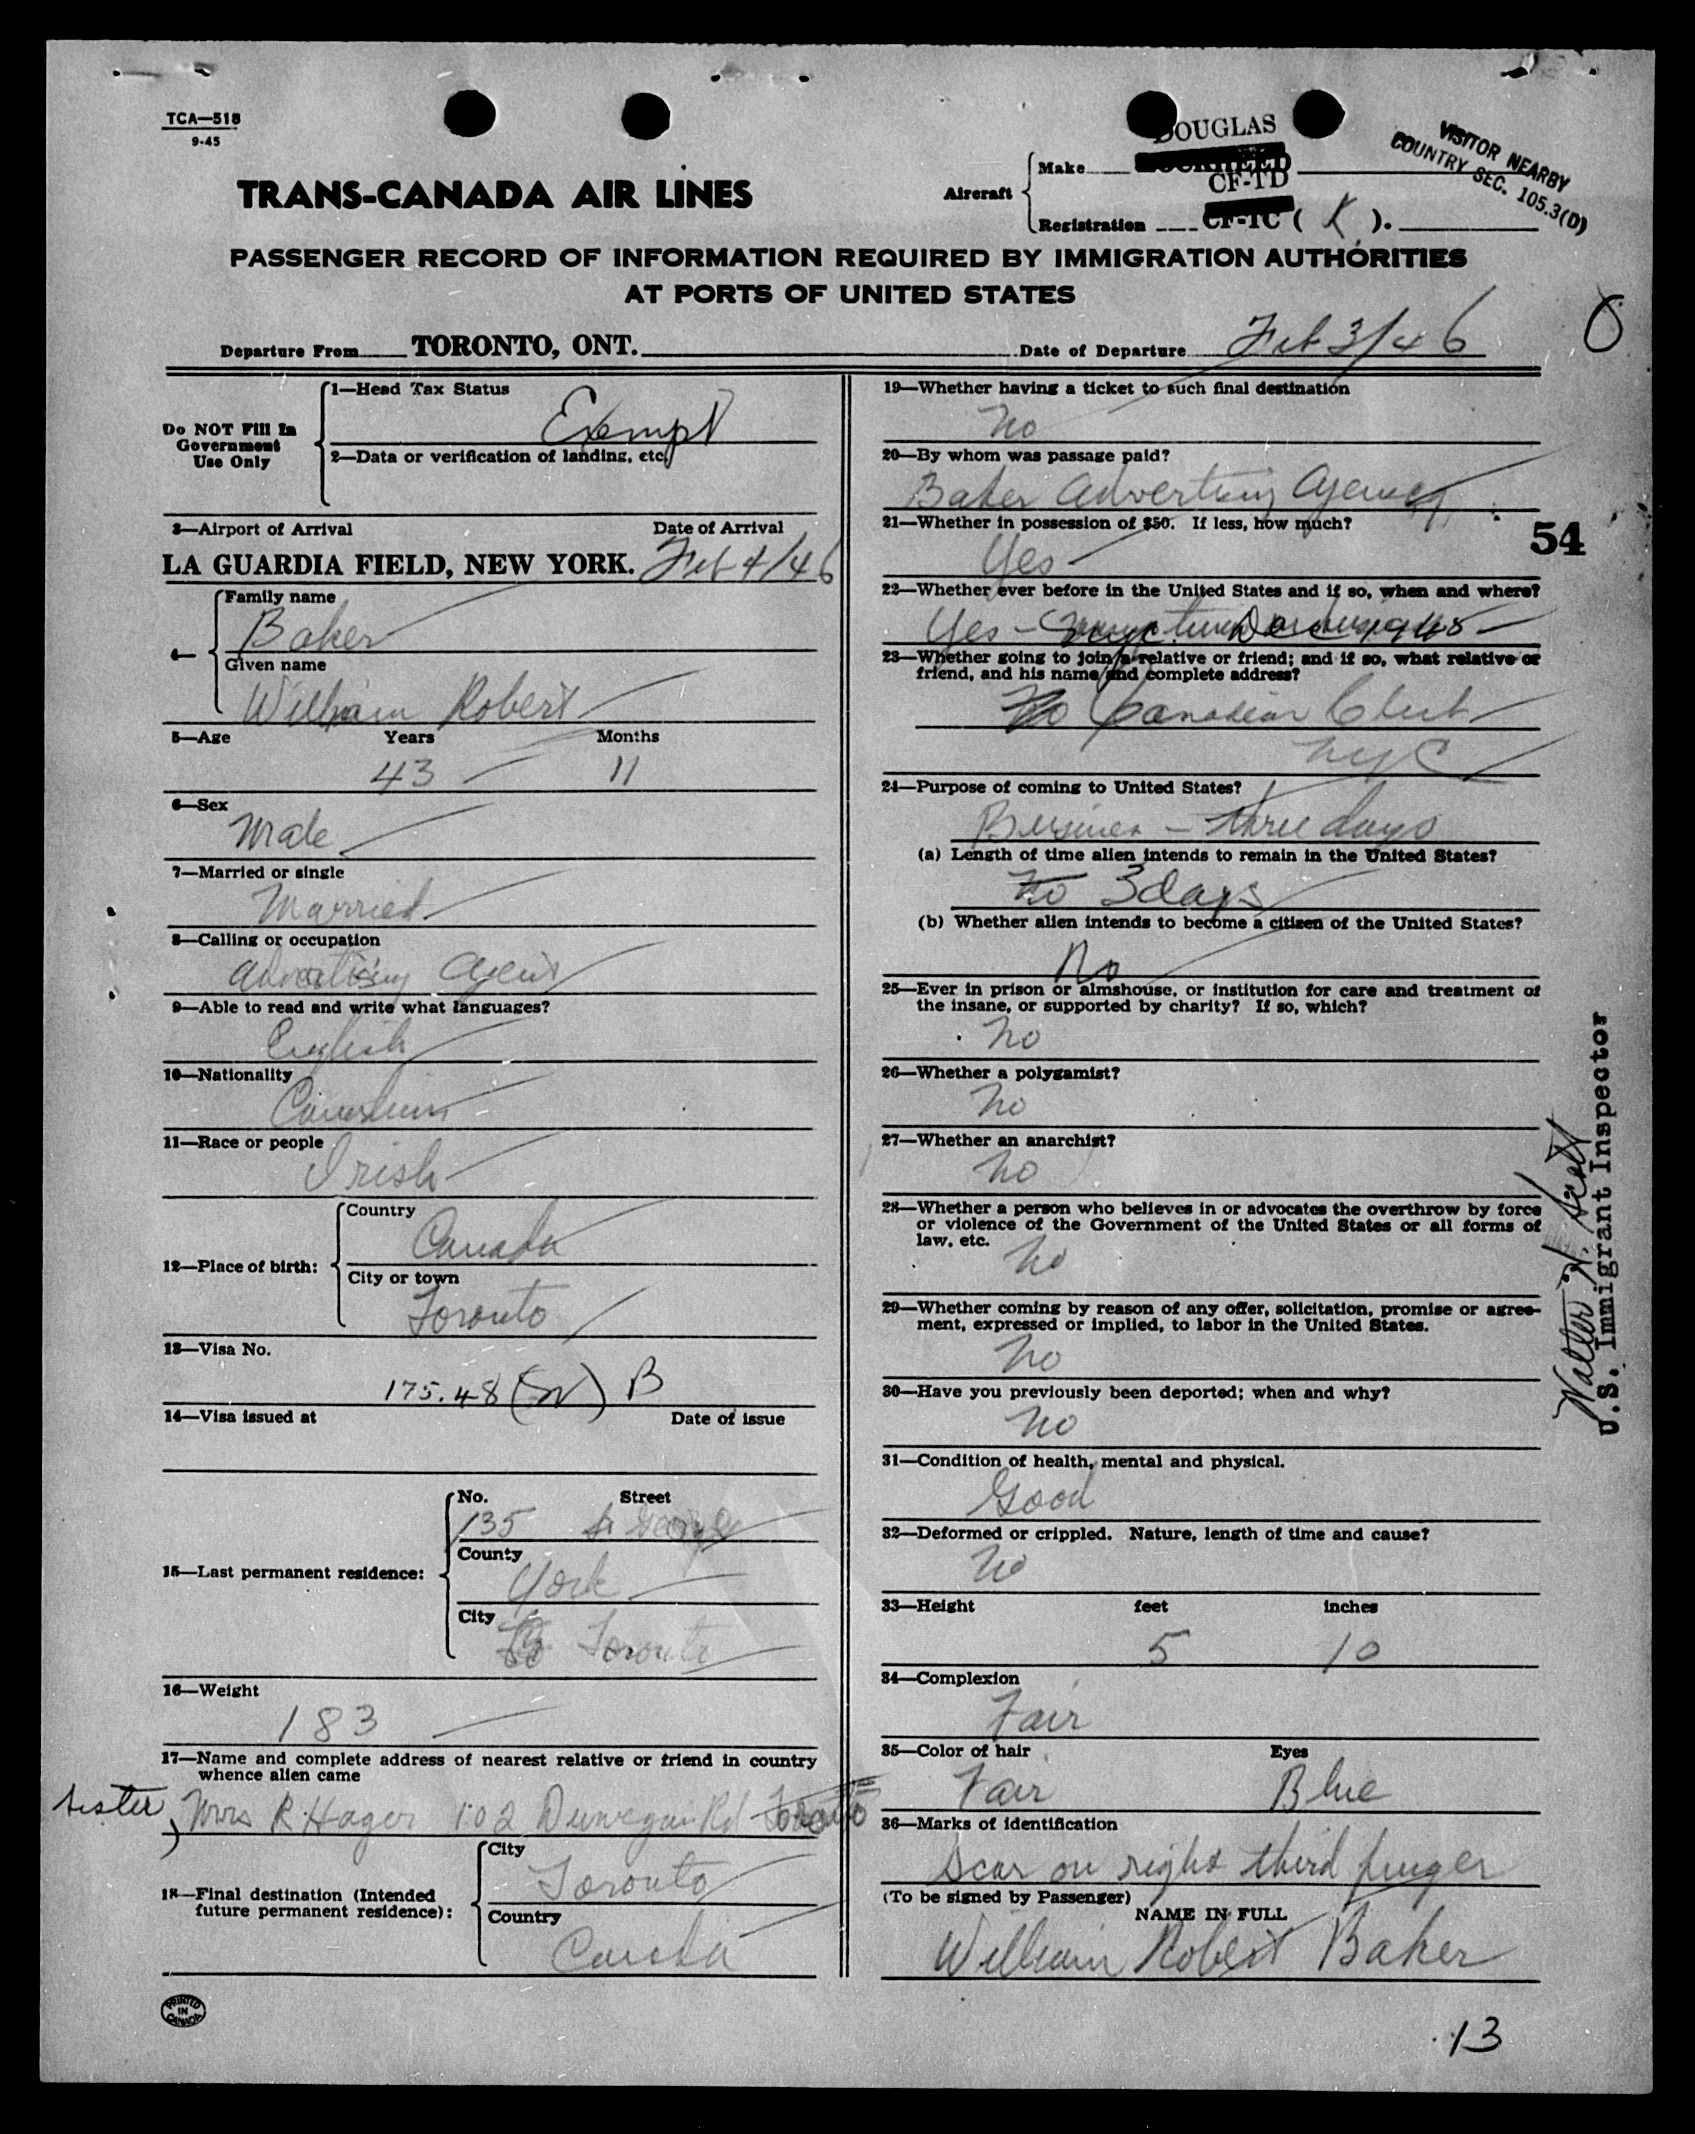 TCA—518
9-45
DOUGLAS
VISITOR NEARBY
COUNTRY SEC. 105.3(D)
Make
LOCKHEED
CF-TD
TRANS-CANADA AIR LINES
Aircraft
Registration CF-TC ( K ).
PASSENGER RECORD OF INFORMATION REQUIRED BY IMMIGRATION AUTHORITIES
AT PORTS OF UNITED STATES
Departure From TORONTO, ONT. Date of Departure Feb 3/46
Do NOT Fill In
Government
Use Only
1—Head Tax Status
Exempt
2—Data or verification of landing, etc.
3—Airport of Arrival Date of Arrival
LA GUARDIA FIELD, NEW YORK. Feb 4/46
4—
Family name
Baker
Given name
William Robert
5—Age Years Months
43 11
6—Sex
Male
7—Married or single
Married
8—Calling or occupation
Advertising Agent
9—Able to read and write what languages?
English
10—Nationality
Canadian
11—Race or people
Irish
12—Place of birth:
Country
Canada
City or town
Toronto
13—Visa No.
175.48 (W) B
14—Visa issued at Date of issue
15—Last permanent residence:
No. Street
135 St George
County
York
City
Toronto
16—Weight
183
17—Name and complete address of nearest relative or friend in country
whence alien came
sister, Mrs R. Hager 102 Dunvegan Rd Toronto
18—Final destination (Intended
future permanent residence):
City
Toronto
Country
Canada
PRINTED
IN
CANADA
19—Whether having a ticket to such final destination
No
20—By whom was passage paid?
Baker Advertising Agency
21—Whether in possession of $50. If less, how much?
Yes
54
22—Whether ever before in the United States and if so, when and where?
Yes – nyc Dec 1945
23—Whether going to join a relative or friend; and if so, what relative or
friend, and his name and complete address?
No Canadian Club
NYC
24—Purpose of coming to United States?
Business – three days
(a) Length of time alien intends to remain in the United States?
No 3 days
(b) Whether alien intends to become a citizen of the United States?
No
25—Ever in prison or almshouse, or institution for care and treatment of
the insane, or supported by charity? If so, which?
No
26—Whether a polygamist?
No
27—Whether an anarchist?
No
28—Whether a person who believes in or advocates the overthrow by force
or violence of the Government of the United States or all forms of
law, etc.
No
29—Whether coming by reason of any offer, solicitation, promise or agree-
ment, expressed or implied, to labor in the United States.
No
30—Have you previously been deported; when and why?
No
31—Condition of health, mental and physical.
Good
32—Deformed or crippled. Nature, length of time and cause?
No
33—Height feet inches
5 10
34—Complexion
Fair
35—Color of hair Eyes
Fair Blue
36—Marks of identification
Scar on right third finger
(To be signed by Passenger)
NAME IN FULL
William Robert Baker
Walter H.
U.S. Immigrant Inspector
13